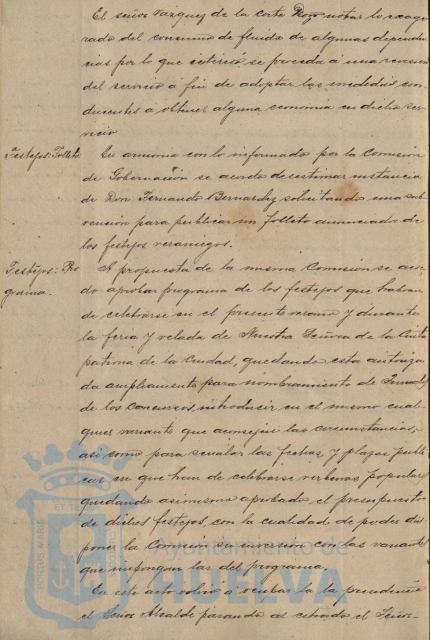 El señor Vázquez de la Corte hizo notar lo exage
rado del consumo de fluido de algunas dependen
cias por lo que interesó se proceda a una revisión
del servicio á fin de adoptar las medidas con
ducentes a obtener alguna economia en dicho ser
vicio
Festejos: Folleto
En armonia con lo informado por la Comisión
de Gobernación se acordó desestimar instancia
de Don Fernando Bernardez solicitando una sub
vención para publicar un folleto anunciador de
los festejos veraniegos.
Festejos: Pro
grama.
A propuesta de la misma Comisión se acor
dó aprobar programa de los festejos que habran
de celebrarse en el presente verano y durante
la feria y velada de Nuestra Señora de la Cinta
patrona de la Ciudad, quedando esta autoriza
da ampliamente para nombramiento de Jurados
de los Concursos, introducir en el mismo cual
quier variante que aconsejen las circunstancias,
asi como para señalar las fechas y plazas públi
cas en que han de celebrarse verbenas populares
quedando asimismo aprobado el presupuesto
de dichos festejos, con la cualidad de poder dis
poner la Comisión su inversión con las variantes
que impongan las del programa.
En este acto volvió a ocupar la presidencia
el Señor Alcalde pasando al estrado el Señor
Ayuntamiento de
HUELVA